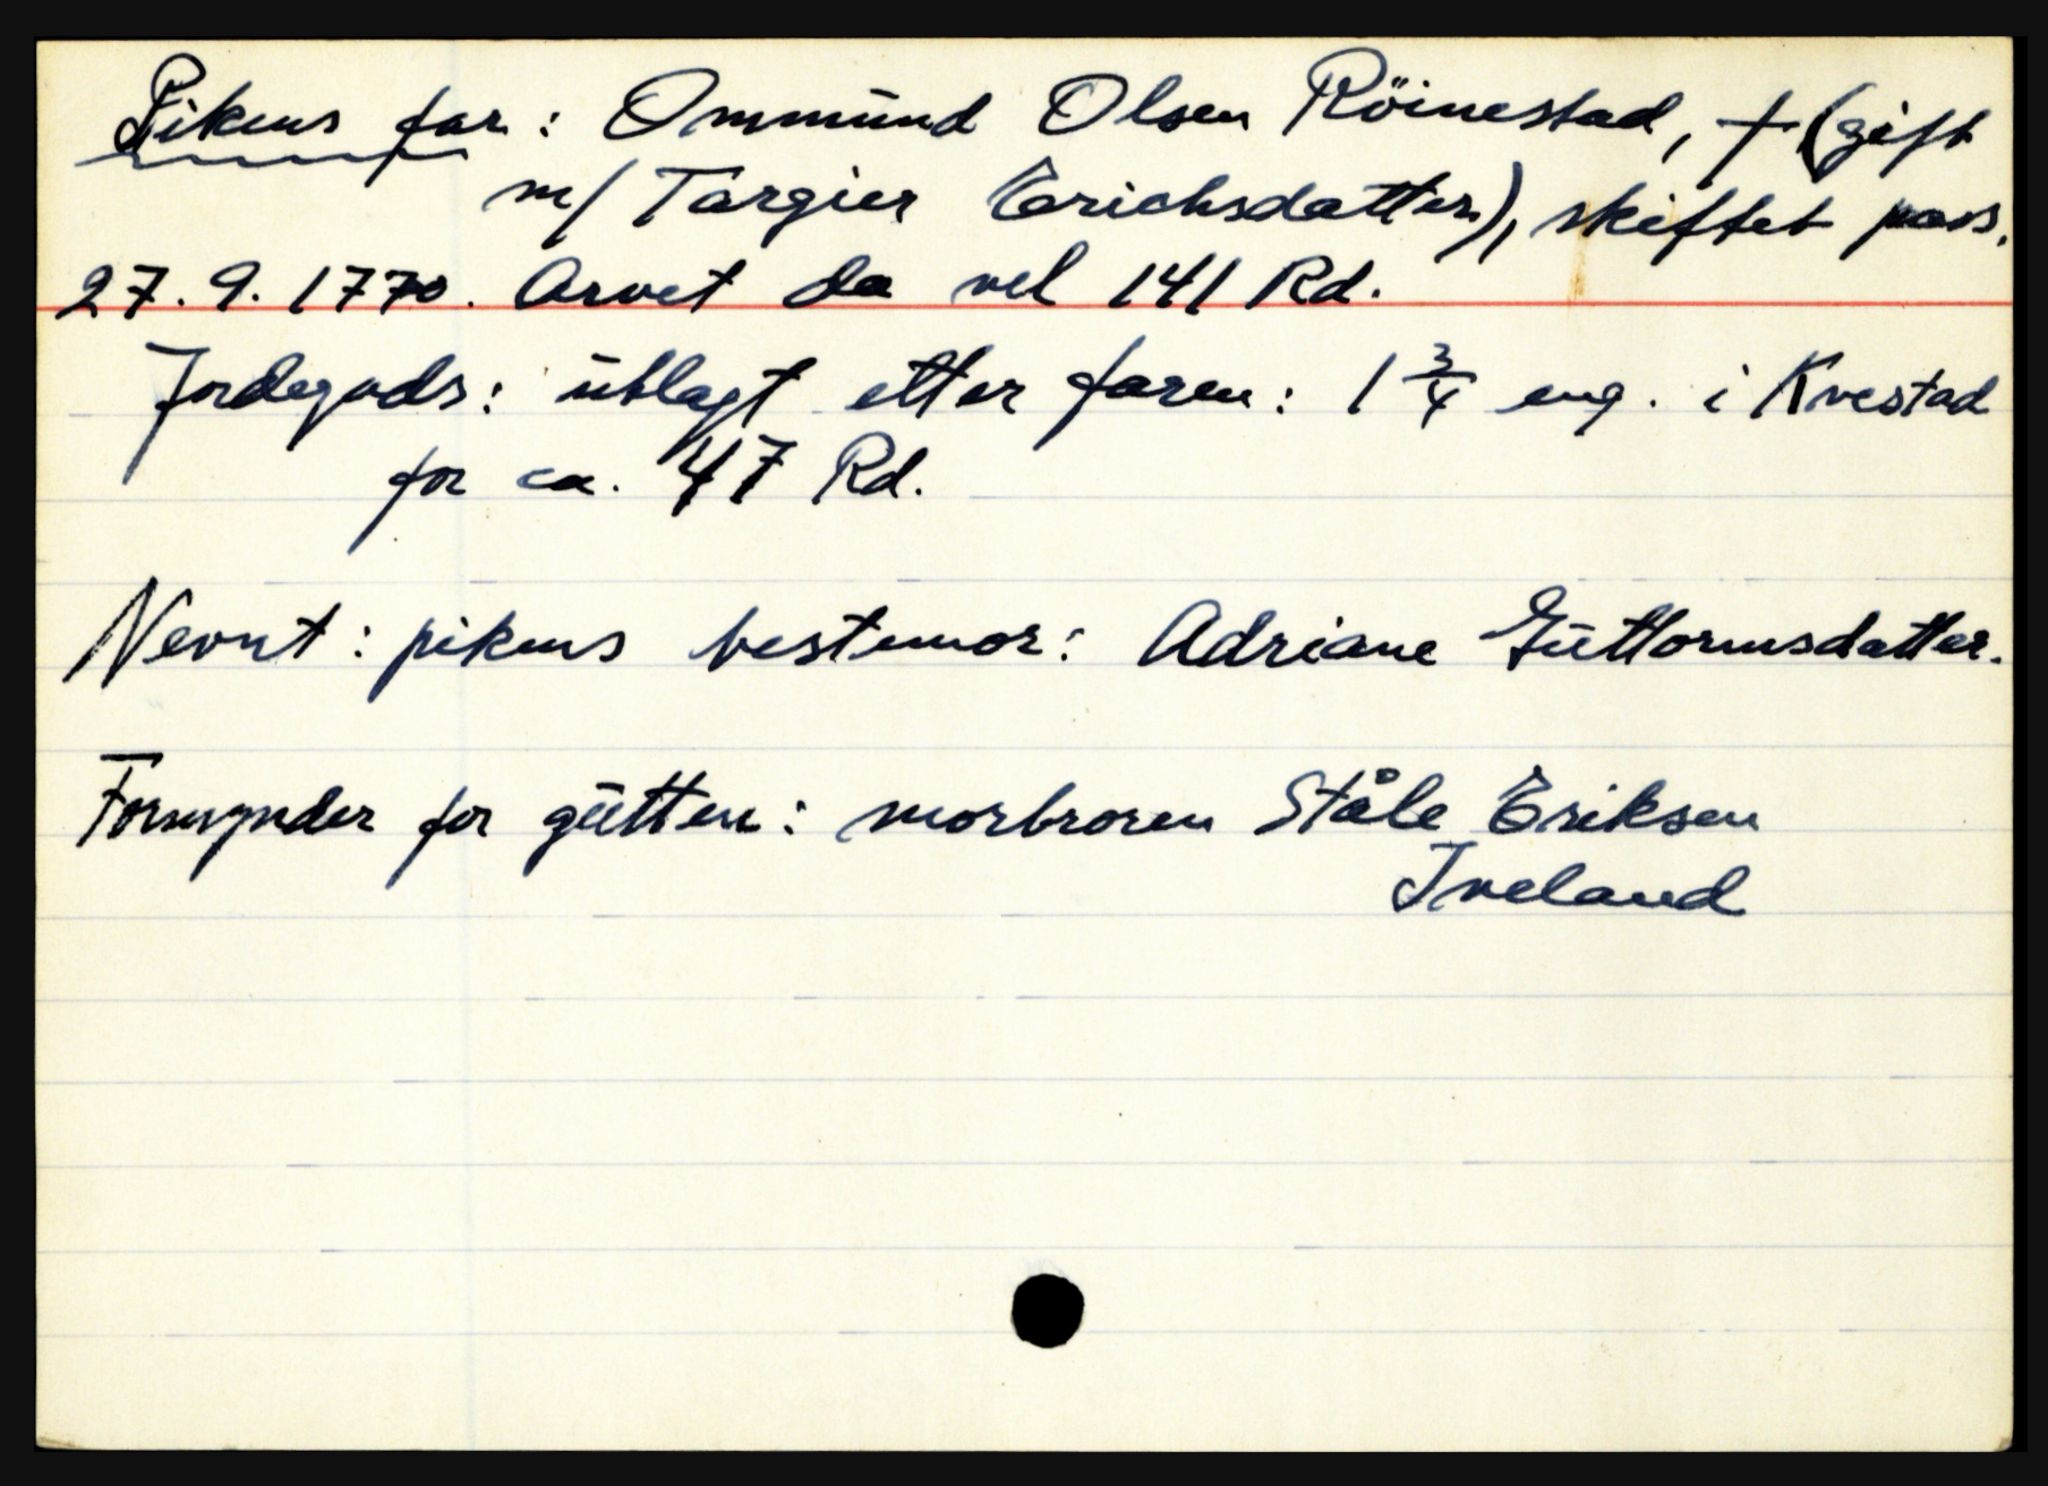 Pikens far: Ommund Olsen Röinestad, † (gift
m/ Targier Erichsdatter), skiftet pass.
27.9.1770. Arvet da vel 141 Rd.
Jordegods: utlagt etter faren: 1 3/4 eng. i Kvestad
for ca. 47 Rd.
Nevnt: pikens bestemor: Adriane Guttormsdatter.
Formynder for gutten: morbroren Ståle Eriksen
Iveland